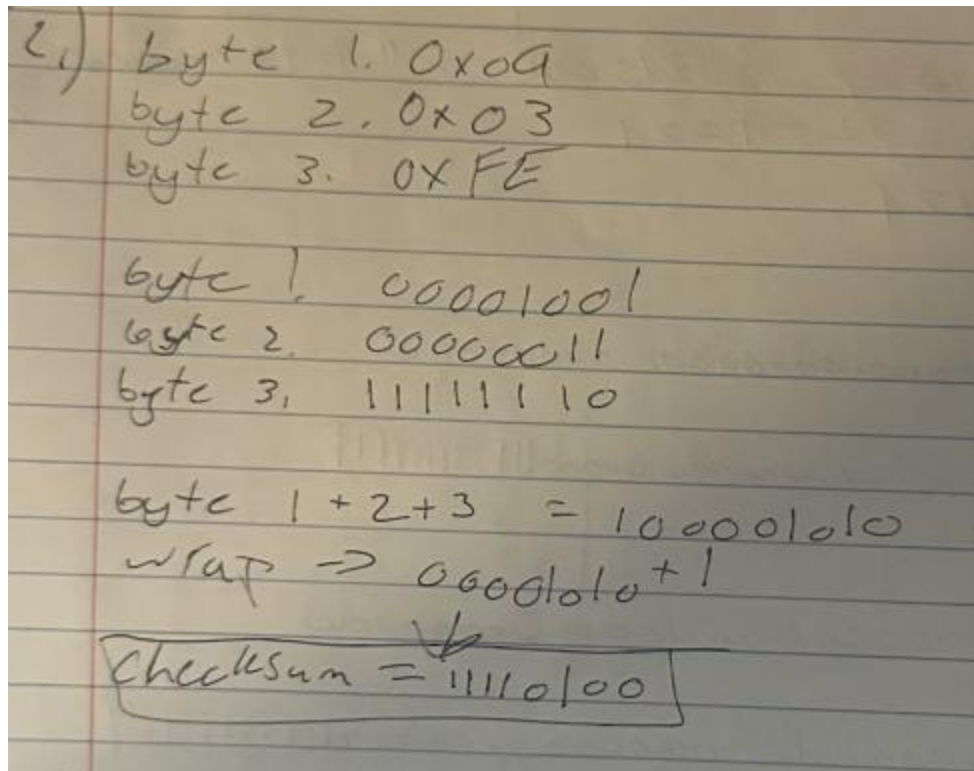 2.) byte 1. 0x09
byte 2. 0x03
byte 3. 0xFE
byte 1. 00001001
byte 2. 00000011
byte 3. 11111110
byte 1 + 2 + 3 = 100001010
wrap → 00001010 + 1
checksum = 11110100